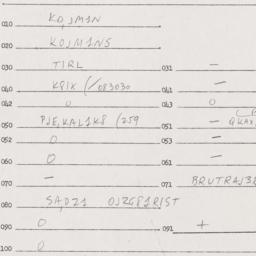 010 KO,JM1N
020 KOJM1NS
030 T1RL 031 —
040 K81X (/083030 041 —
042 0 043 0
050 PJE,KAL1K8 (259 051 —
052 0 053 —
060 0 061 —
070 — 071 BRUTRAJ3
080 SA,DZ1 OJZG81R1ST
090 0 091 +
100 0